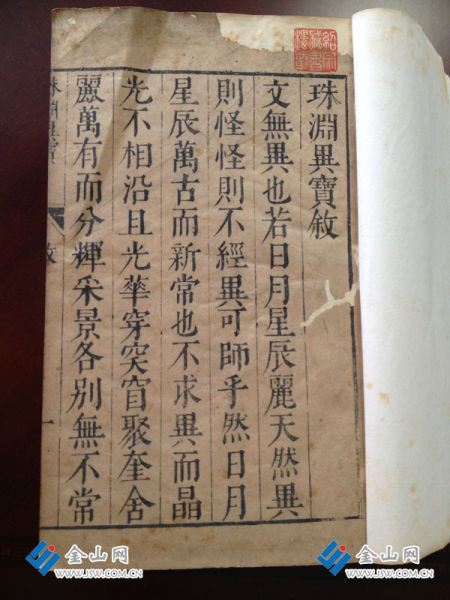 紹宗
藏書
樓章
珠淵異寶敘
文無異也若日月星辰麗天然異
則怪怪則不經異可師乎然日月
星辰萬古而新常也不求異而晶
光不相沿且光華穿突窅聚奎舍
麗萬有而分輝采景各別無不常
珠淵異寶
敘
一
金山网
WWW.JSW.COM.CN
金山网
WWW.JSW.COM.CN